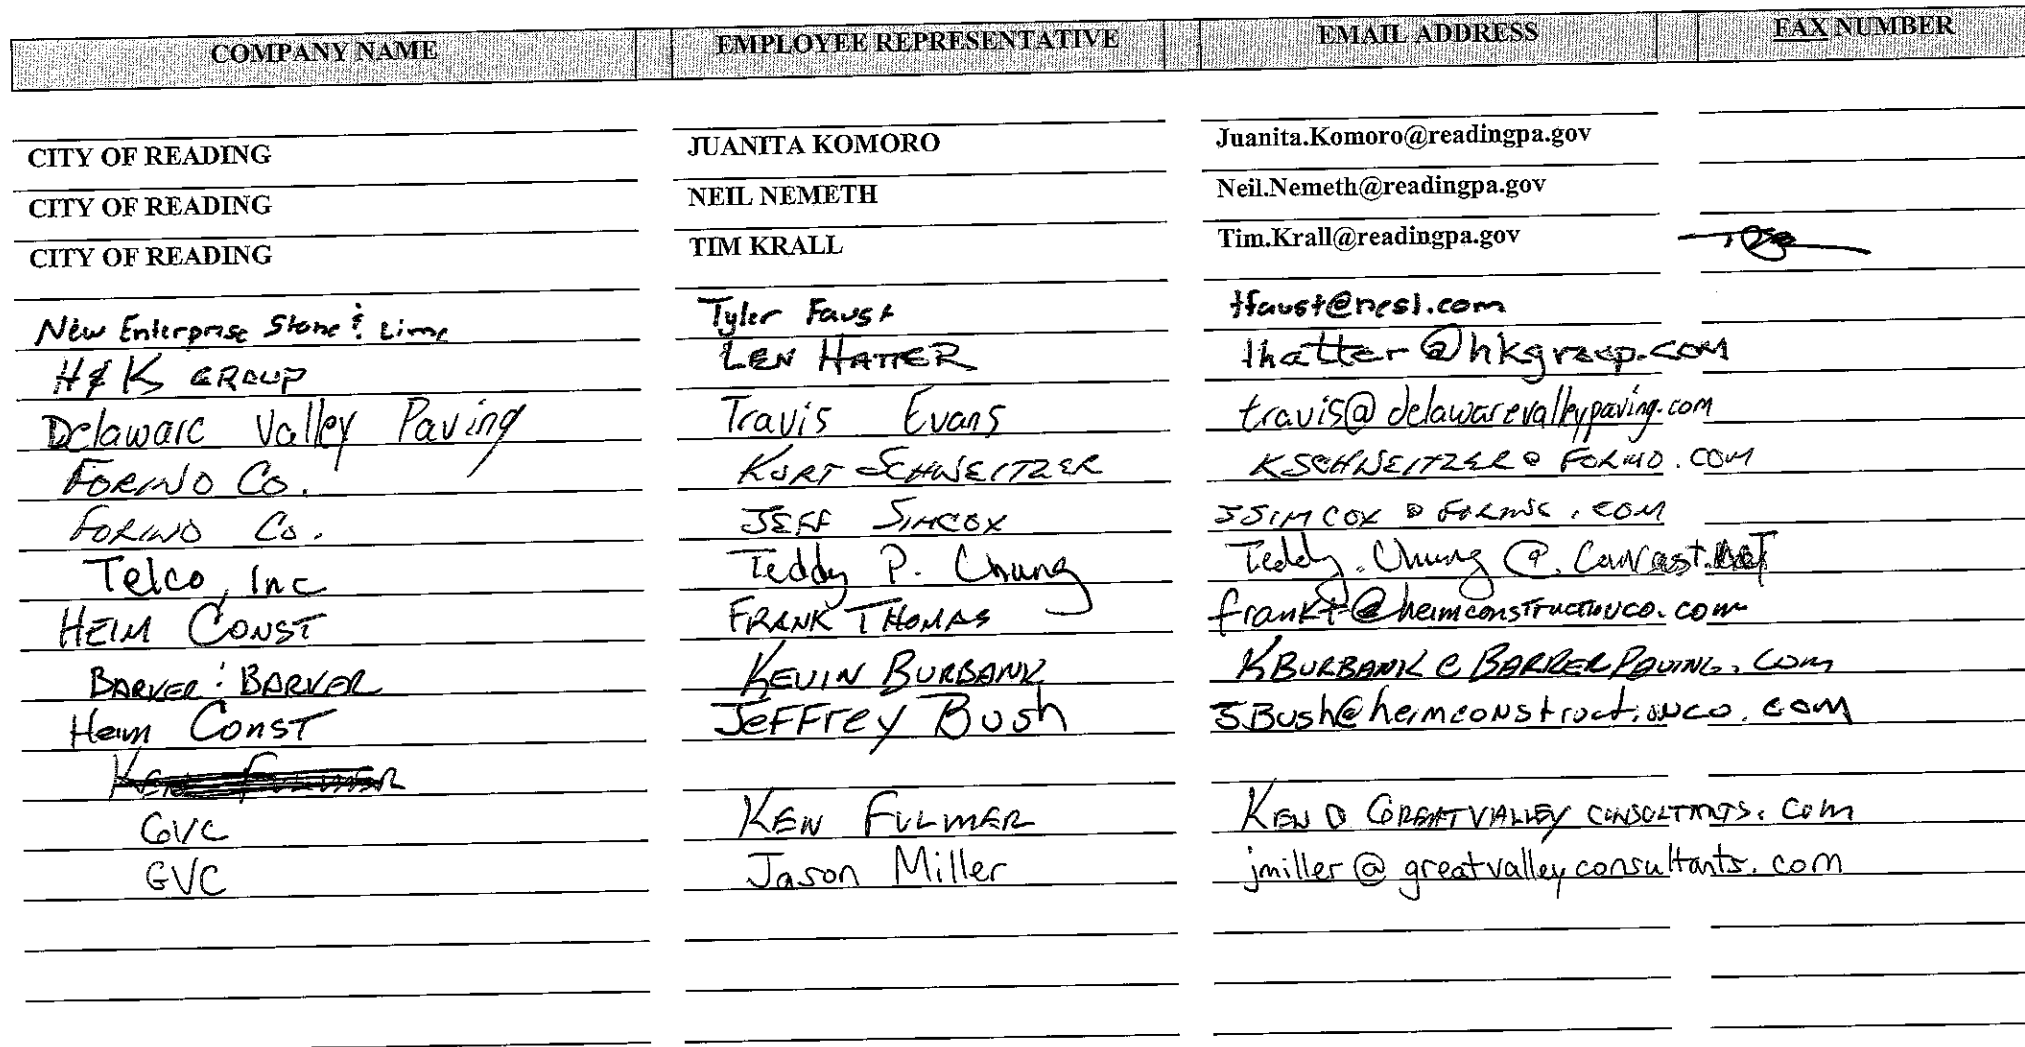 COMPANY NAME EMPLOYEE REPRESENTATIVE EMAIL ADDRESS FAX NUMBER
CITY OF READING JUANITA KOMORO Juanita.Komoro@readingpa.gov
CITY OF READING NEIL NEMETH Neil.Nemeth@readingpa.gov
CITY OF READING TIM KRALL Tim.Krall@readingpa.gov
New Enterprise Stone & Lime Tyler Faust tfaust@nesl.com
H & K GROUP LEN HATTER lhatter@hkgroup.com
Delaware Valley Paving Travis Evans travis@delawarevalleypaving.com
FORINO Co. KURT SCHWEITZER KSCHWEITZER@FORINO.COM
FORINO Co. JEFF SIMCOX JSIMCOX@FORINO.COM
Telco, Inc Teddy P. Chung Teddy.Chung@
HEIM CONST FRANK THOMAS frankt@heimconstructionco.com
BARKER & BARKER KEVIN BURBANK KBURBANK@BARKERPAVING.COM
Heim CONST JeFFrey Bush JBush@heimconstructionco.com
KEN FULMER
GVC KEN FULMER KEN@GREATVALLEYCONSULTANTS.COM
GVC Jason Miller jmiller@greatvalleyconsultants.com